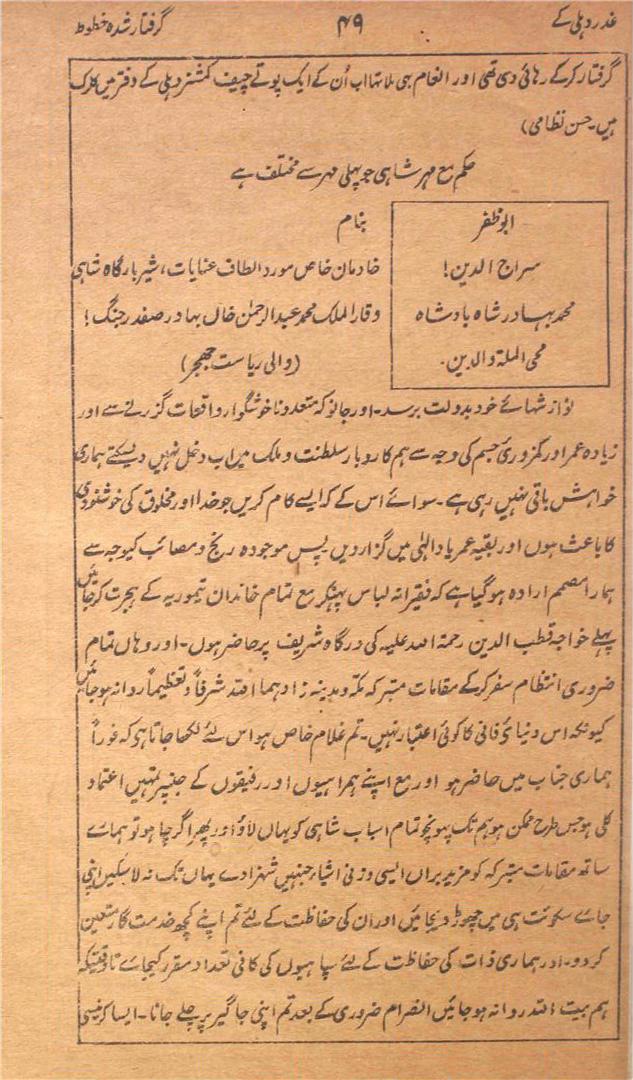 غدر دہلی کے
۴۹
گرفتار شدہ خطوط
گرفتار کرکے رہائی دی تھی اور انعام ہی ملا تھا اب اُن کے ایک پوتے چیف کمشنر دہلی کے دفتر میں کلرک
ہیں۔ حسن نظامی)
حکم مع مہر شاہی جو پہلی مہر سے مختلف ہے
ابو ظفر
سراج الدین!
محمد بہادر شاہ بادشاہ
محی الملۃ والدین۔
بنام
خادمان خاص مورد الطاف عنایات، شیر بارگاہ شاہی
وقار الملک محمد عبدالرحمٰن خاں بہادر صفدر جنگ!
(والی ریاست جھجر)
نوازشہائے خود بدولت برسد۔ اور جانو کہ متعدد ناخوشگوار واقعات گزرنے سے اور
زیادہ عمر اور کمزوریٔ جسم کی وجہ سے ہم کاروبار سلطنت و ملک میں اب دخل نہیں دیسکتے ہماری
خواہش باقی نہیں رہی ہے۔ سوائے اس کے کہ ایسے کام کریں جو خدا اور مخلوق کی خوشنودی
کا باعث ہوں اور بقیہ عمر یاد الٰہی میں گزار دیں پس موجودہ رنج و مصائب کیوجہ سے
ہمارا مصمم ارادہ ہوگیا ہے کہ فقیرانہ لباس پہنکر مع تمام خاندان تیموریہ کے ہجرت کرجائیں
پہلے خواجہ قطب الدین رحمۃ اللہ علیہ کی درگاہ شریف پر حاضر ہوں۔ اور وہاں تمام
ضروری انتظام سفر کرکے مقامات متبرکہ مکہ و مدینہ زادہما اللہ شرفاً و تعظیماً روانہ ہوجائیں
کیونکہ اس دنیائے فانی کا کوئی اعتبار نہیں۔ تم غلام خاص ہو اس لئے لکھا جاتا ہی کہ فوراً
ہماری جناب میں حاضر ہو اور مع اپنے ہمراہیوں اور رفیقوں کے جنپر تمہیں اعتماد
کلی ہو جس طرح ممکن ہو ہم تک پہونچو تمام اسباب شاہی کو یہاں لاؤ اور پھر اگر چاہو تو ہمارے
ساتھ مقامات متبرکہ کو مزید براں ایسی وزنی اشیاء جنہیں شہزادے یہاں تک نہ لاسکیں اپنی
جائے سکونت ہی میں چھوڑ دیجائیں اور ان کی حفاظت کے لئے تم اپنے کچھ خدمت گار متعین
کردو۔ اور ہماری ذات کی حفاظت کے لئے سپاہیوں کی کافی تعداد مقرر کیجائے تاوقتیکہ
ہم بیت اللہ روانہ ہوجائیں انصرام ضروری کے بعد تم اپنی جاگیر پر چلے جانا۔ ایسا کرنیسی